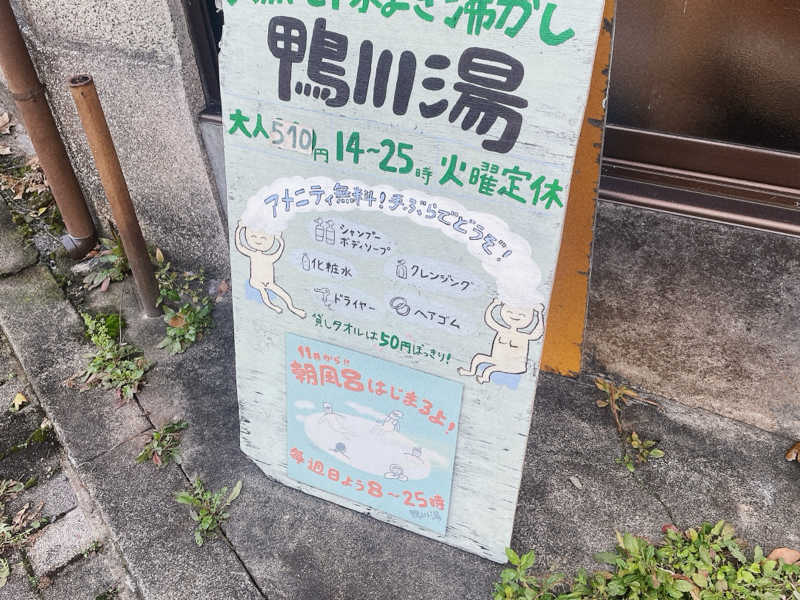 沸かし
鴨川湯
大人510円 14~25時 火曜定休
アメニティ無料!手ぶらでどうぞ!
シャンプー
ボディソープ
化粧水
クレンジング
ドライヤー
ヘアゴム
貸しタオルは50円ぽっきり!
11月から!!
朝風呂はじまるよ!
毎週日よう8~25時
鴨川湯